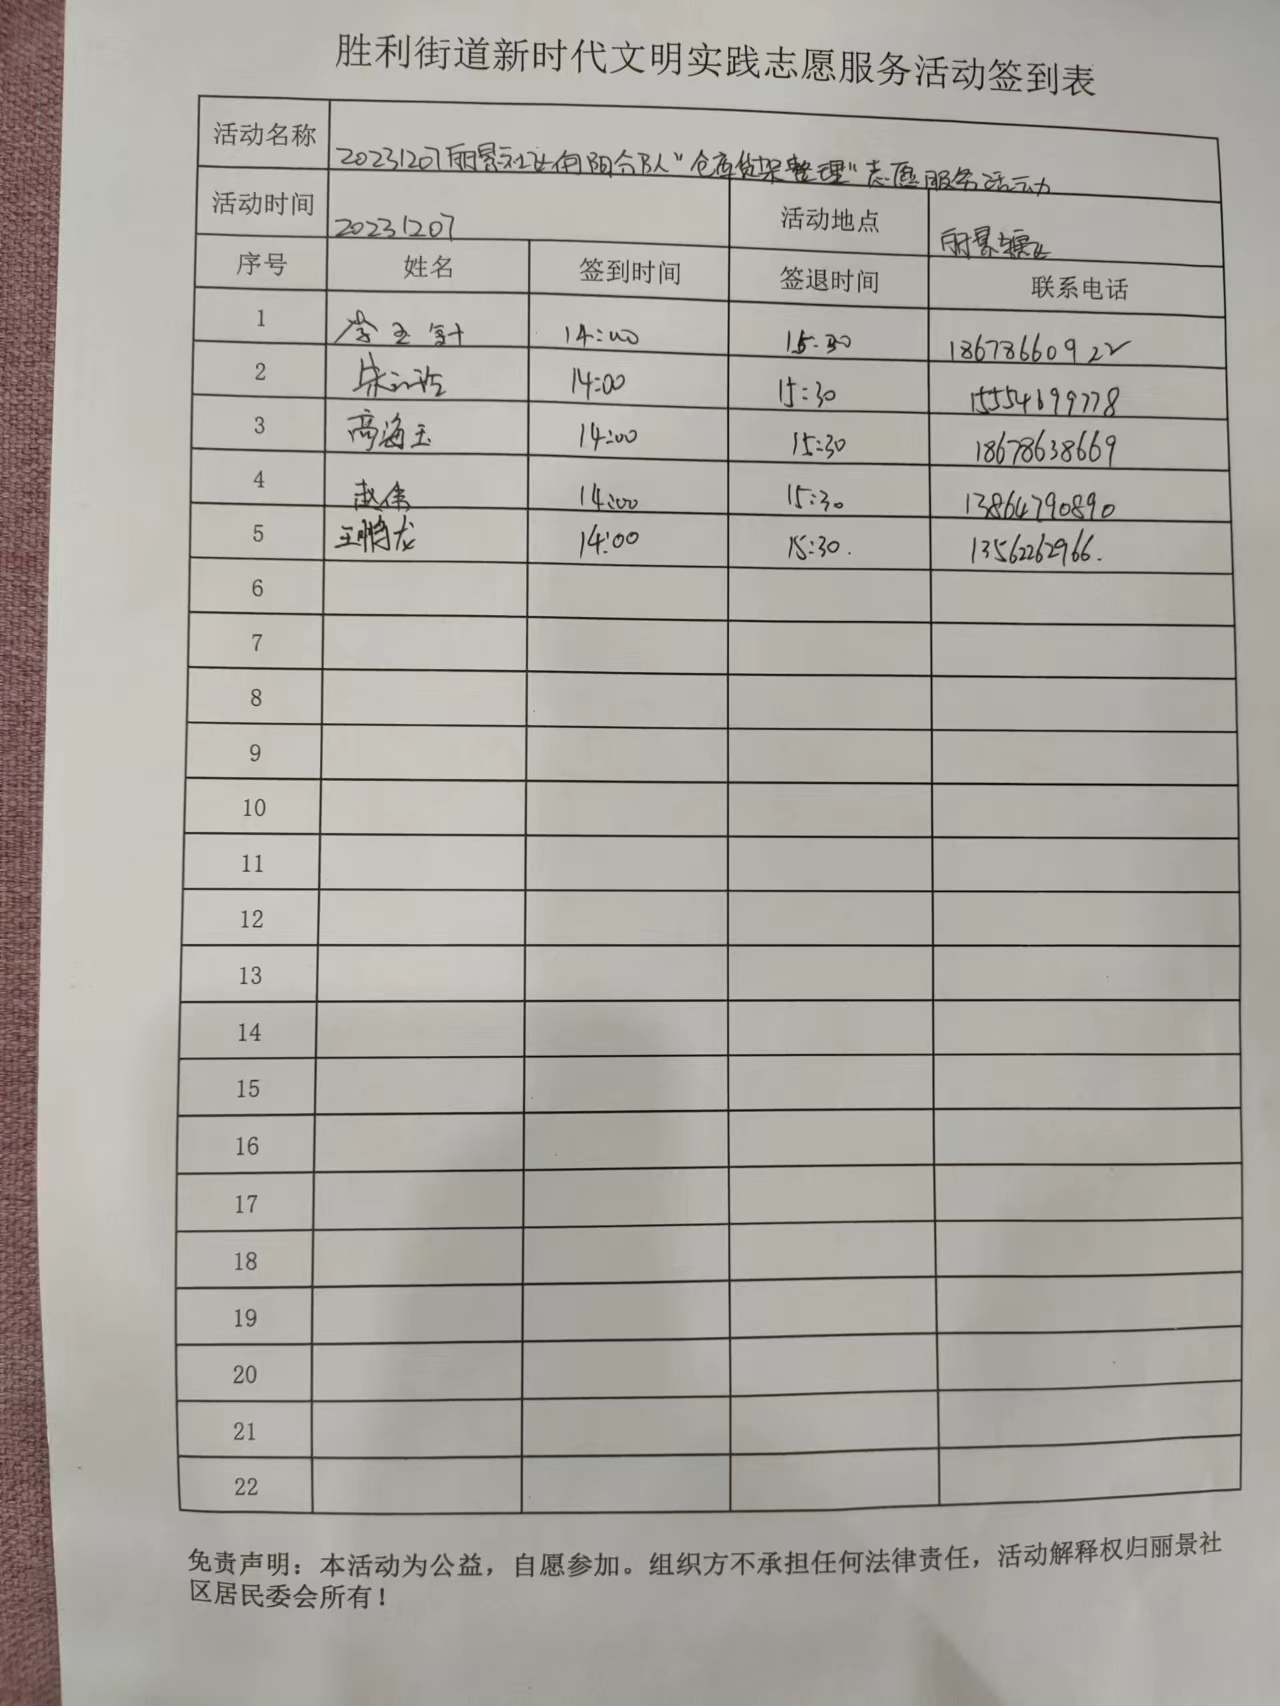 胜利街道新时代文明实践志愿服务活动签到表
活动名称 20231207丽景社区向阳分队"仓库货架整理"志愿服务活动
活动时间 20231207 活动地点 丽景社区
序号 姓名 签到时间 签退时间 联系电话
1 14:00 15:30 18678660922
2 14:00 15:30 15554699778
3 高海玉 14:00 15:30 18678638669
4 赵伟 14:00 15:30 13864790890
5 王鹏龙 14:00 15:30. 13562262966.
6
7
8
9
10
11
12
13
14
15
16
17
18
19
20
21
22
免责声明：本活动为公益，自愿参加。组织方不承担任何法律责任，活动解释权归丽景社
区居民委会所有！